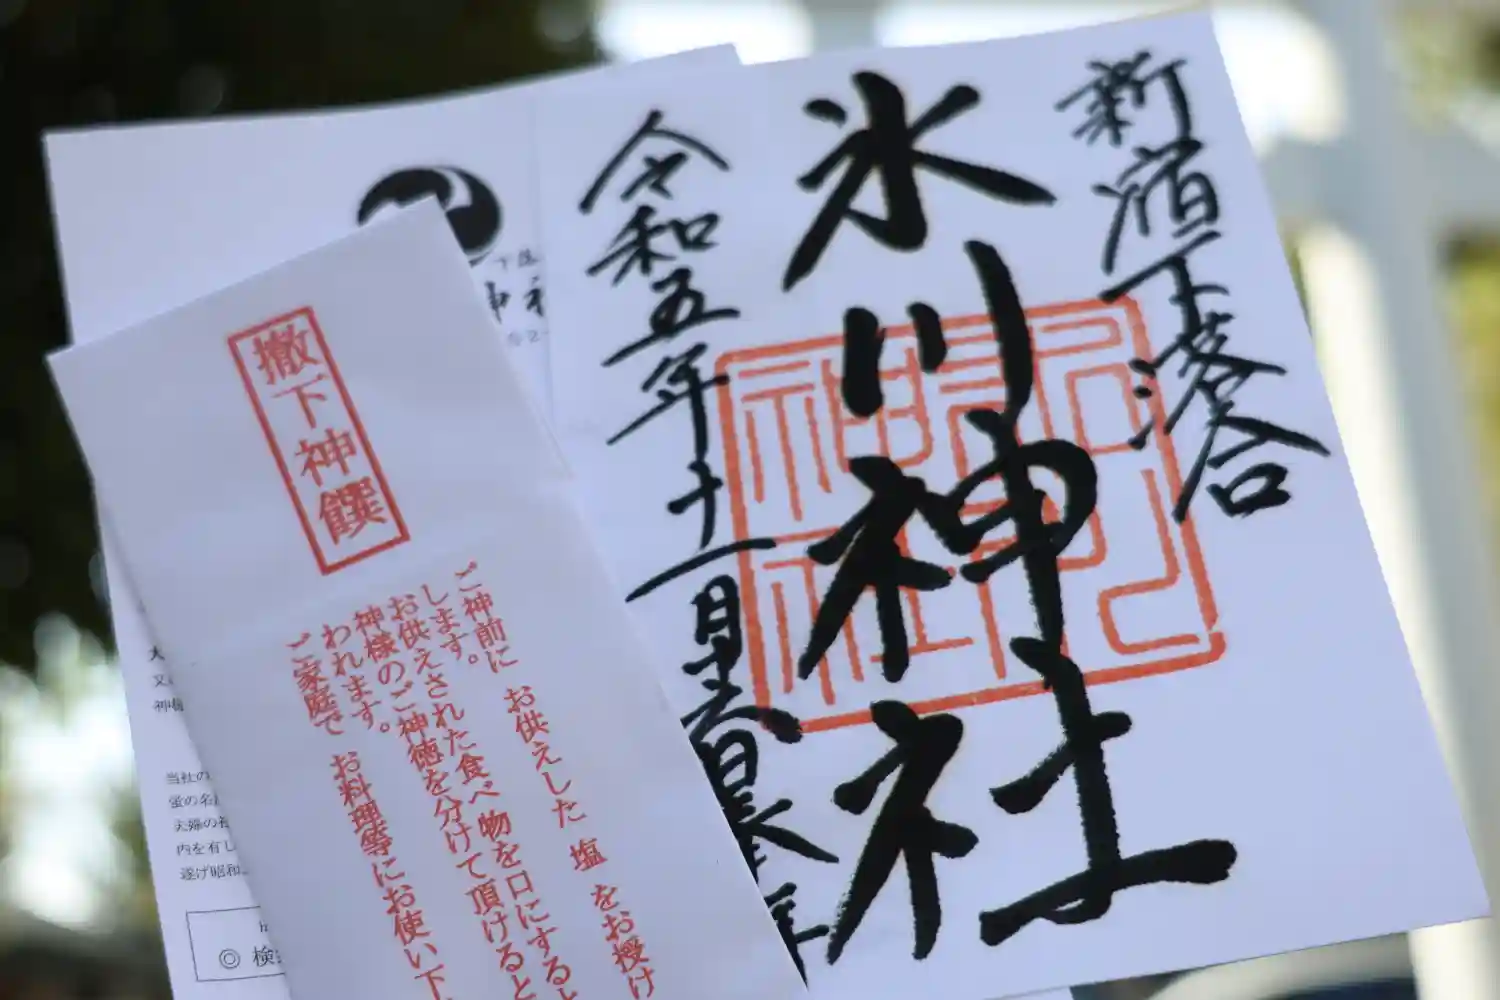 新宿下落合
氷川神社
令和五年十一月
撤下神饌
ご神前に お供えした 塩 をお授け
します。
お供えされた食べ物を口にすると
神様のご神徳を分けて頂けると
われます。
ご家庭で お料理等にお使い下
当社の
蛍の名
夫婦の
内を有し
遂げ昭和
◎ 検